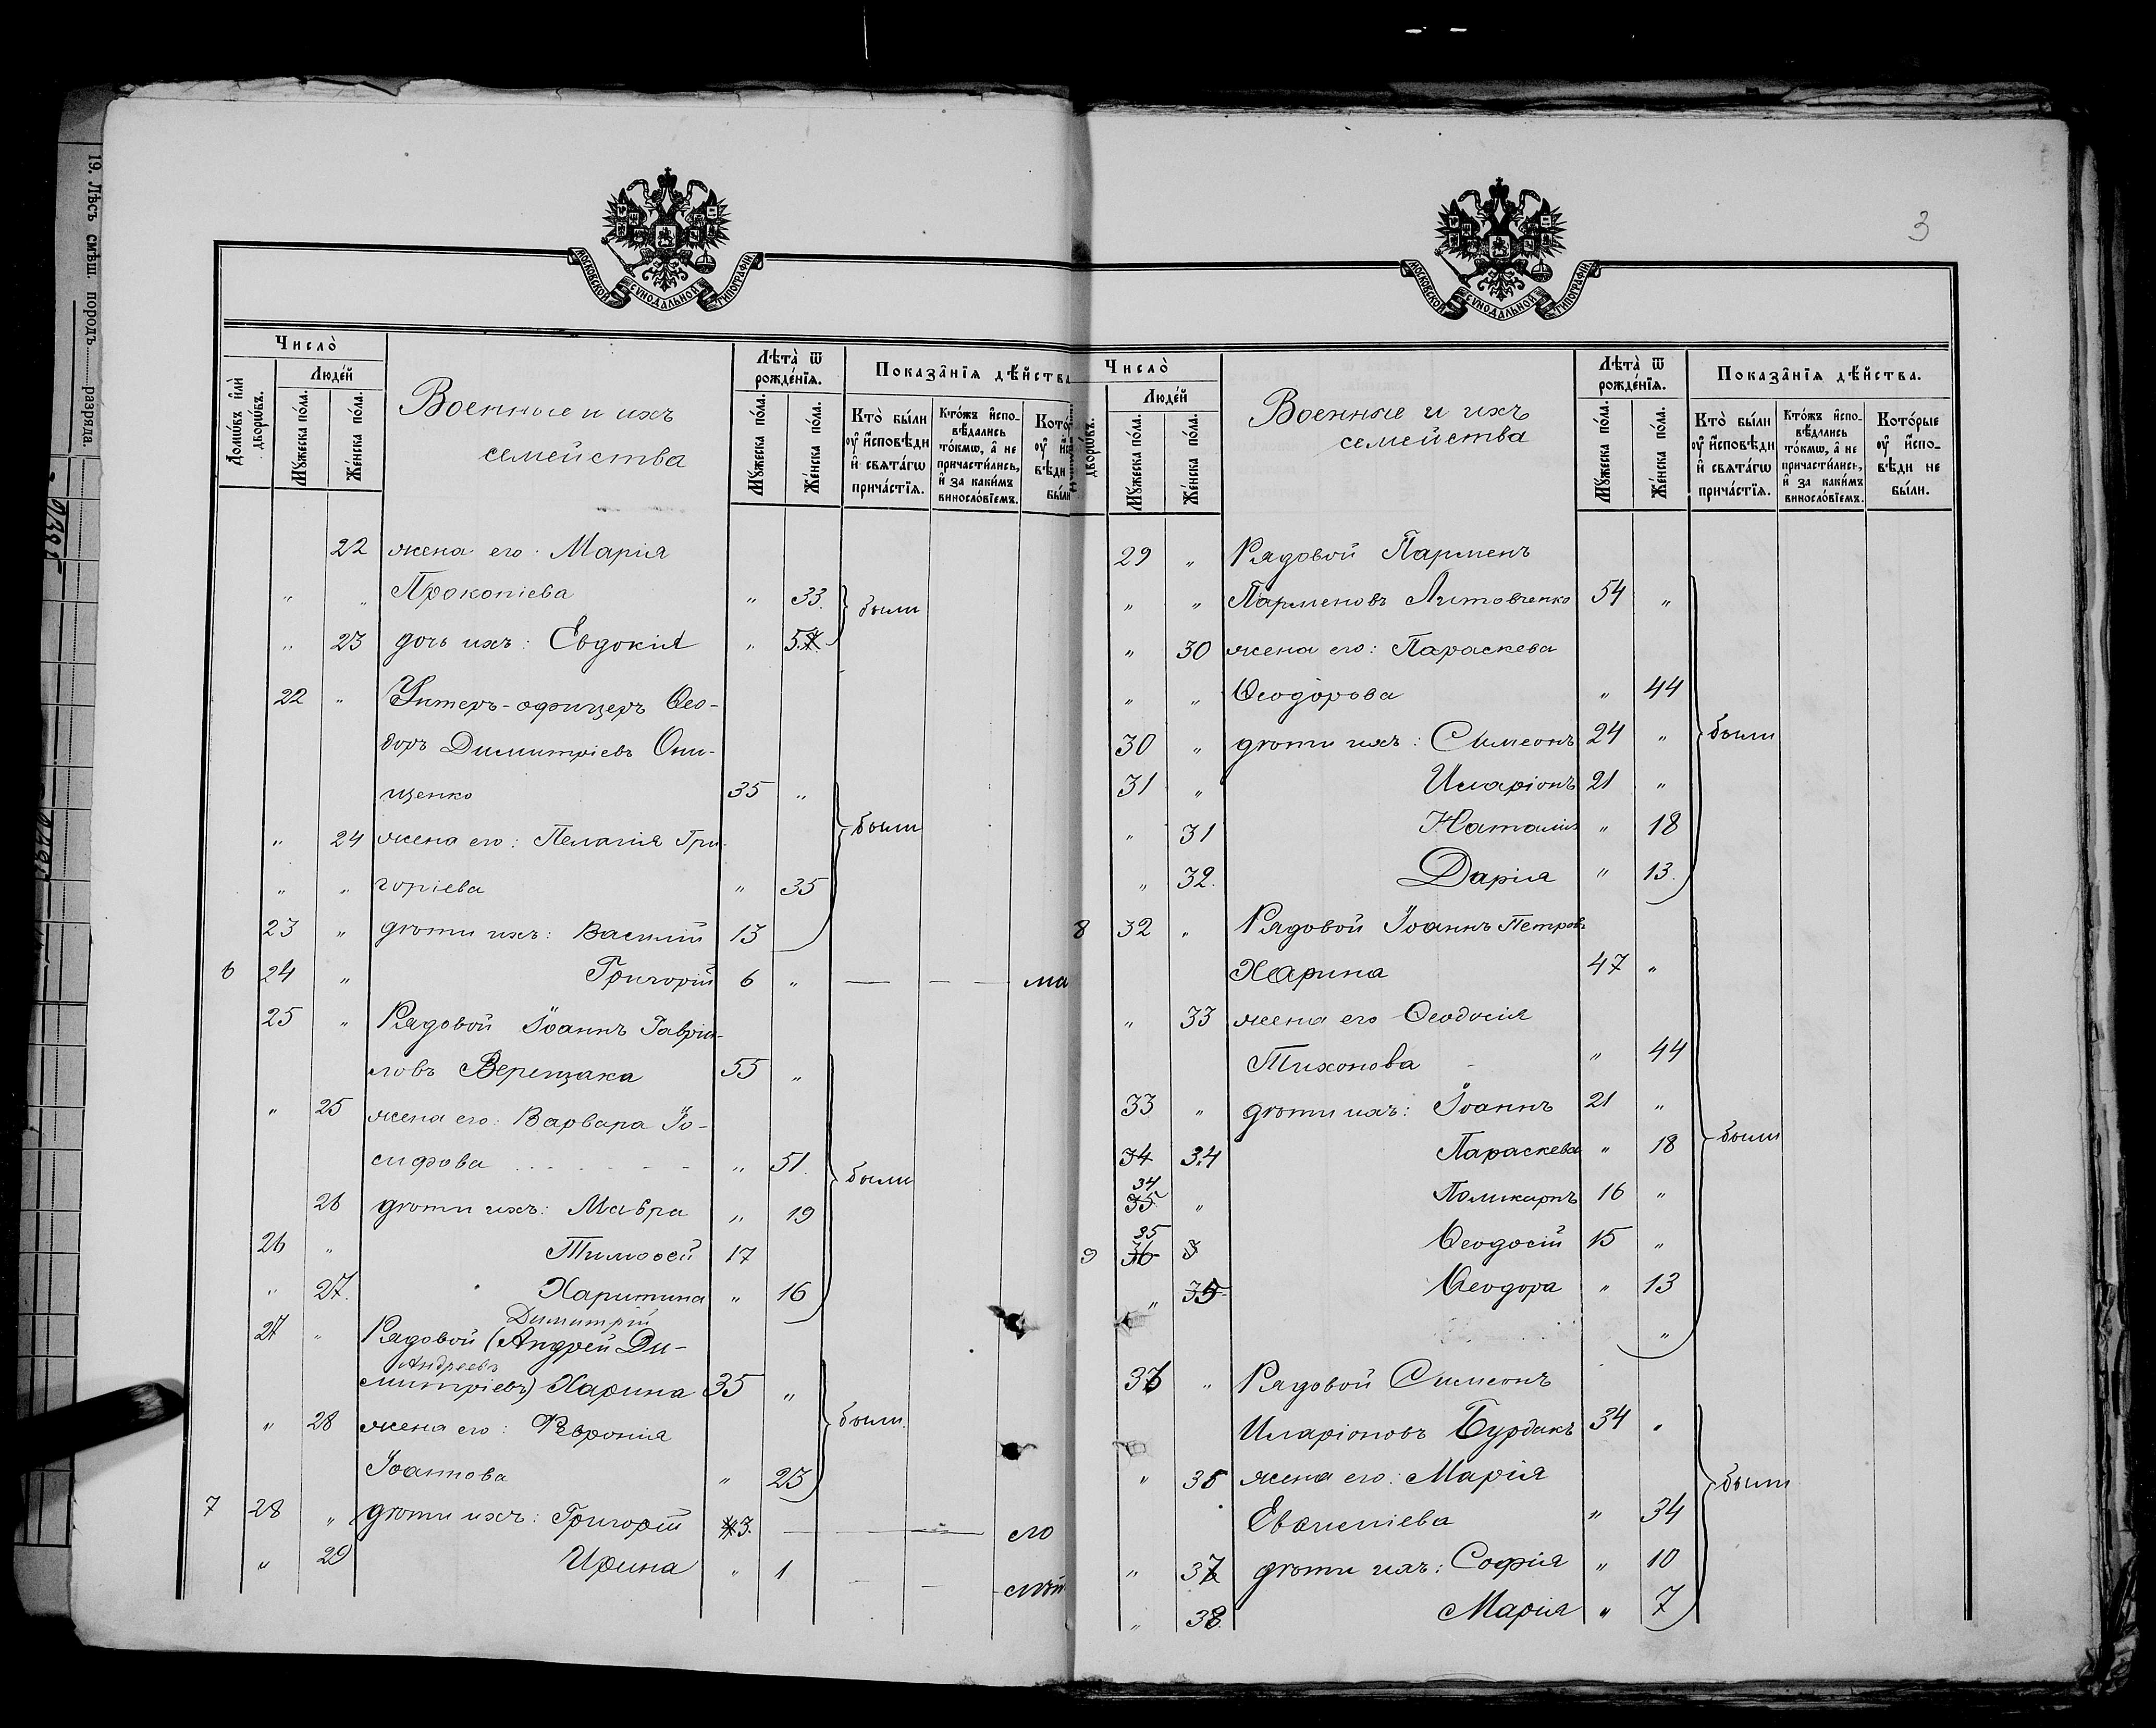 19. Лѣсъ смѣш. породъ разряда.
МОСКОВСКОЙ СѴНОДАЛЬНОЙ ТИПОГРАФІИ
Число̀
Домѡ́въ и҆лѝ дворѡ́въ.
Люде́й
Мꙋ́жеска по́ла.
Же́нска по́ла.
Военные и ихъ
семейства
Лѣта̀ ѿ рожде́нїѧ.
Мꙋ́жеска по́ла.
Же́нска по́ла.
Показа̂нїѧ дѣ́йства
Кто̀ бы́ли
ᲂу҆ и҆сповѣди
и҆ свѧта́гѡ
прича́стїѧ.
Кто́жъ и҆спо-
вѣдались
то́кмѡ, а҆ не
причасти́лись,
и҆ за каки́мъ
винословїемъ.
22 жена его Марія
„ „ Прокопіева „ 33. были
„ 23 дочь ихъ: Евдокія „ 5
22 „ Унтеръ-офицеръ Ѳео-
доръ Димитріевъ Они-
щенко 35 „
„ 24 жена его: Пелагія Гри- были
„ „ горіева „ 35
23 „ дѣти ихъ: Василій 13
6 24 „ Григорій 6 „ — — — ма
25 „ Рядовой Іоаннъ Гаври-
ловъ Верещака 55 „
„ 25 жена его: Варвара Іо-
сифова „ 51. были
26 дѣти ихъ: Мавра „ 19
26 „ Тимоѳей 17
„ 27. Харитина „ 16
Димитрій
27 „ Рядовой (Андрей Ди-
Андреевъ
митріевъ) Харина 35 „
„ 28 жена его: Февронія были
Іоаннова „ 25
7 28 „ дѣти ихъ: Григорій 3. — — ло
„ 29 Ирина „ 1 — — лѣт
3
МОСКОВСКОЙ СѴНОДАЛЬНОЙ ТИПОГРАФІИ
Число̀
дворѡ́въ.
Люде́й
Мꙋ́жеска по́ла.
Же́нска по́ла.
Военные и ихъ
семейства
Лѣта̀ ѿ рожде́нїѧ.
Мꙋ́жеска по́ла.
Же́нска по́ла.
Показа̂нїѧ дѣ́йства.
Кто̀ бы́ли
ᲂу҆ и҆сповѣди
и҆ свѧта́гѡ
прича́стїѧ.
Кто́жъ и҆спо-
вѣдались
то́кмѡ, а҆ не
причасти́лись,
и҆ за каки́мъ
винословїемъ.
Кото́рые
ᲂу҆ и҆спо-
вѣди не
бы́ли.
29 „ Рядовой Парменъ
„ „ Парменовъ Литовченко 54 „
„ 30 жена его: Параскева
„ „ Ѳеодорова „ 44
30 „ дѣти ихъ: Симеонъ 24 „ были
31 „ Иларіонъ 21 „
„ 31 Наталія „ 18
„ 32. Дарія „ 13.
8 32 „ Рядовой Іоаннъ Петровъ
Харина 47 „
„ 33 жена его Ѳеодосія
Тихонова „ 44
33 „ дѣти ихъ: Іоаннъ 21 „
34 34 Параскева „ 18 были
34
35 „ Поликарпъ 16 „
35
9 36 Ѳеодосій 15 „
„ 35 Ѳеодора „ 13
„
36 „ Рядовой Симеонъ
Иларіоновъ Бурдакъ 34 „
„ 36 жена его: Марія были
Евгеніева „ 34
„ 37 дѣти ихъ: Софія „ 10
„ 38. Марія „ 7